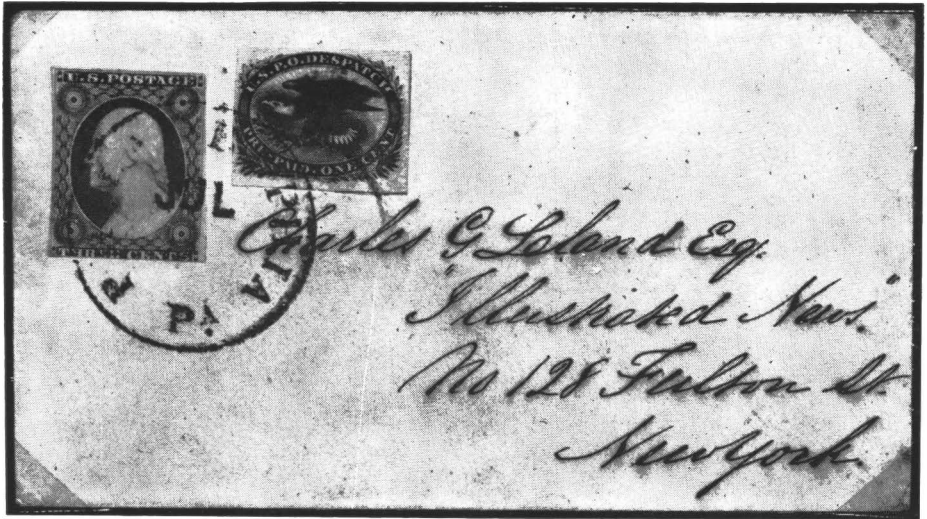 U.S. POSTAGE
THREE CENTS.
U.S.P.O. DESPATCH
PRE-PAID. ONE CENT
JUL
PA
Charles G Leland Esq.
"Illustrated News."
No 128 Fulton St.
New York